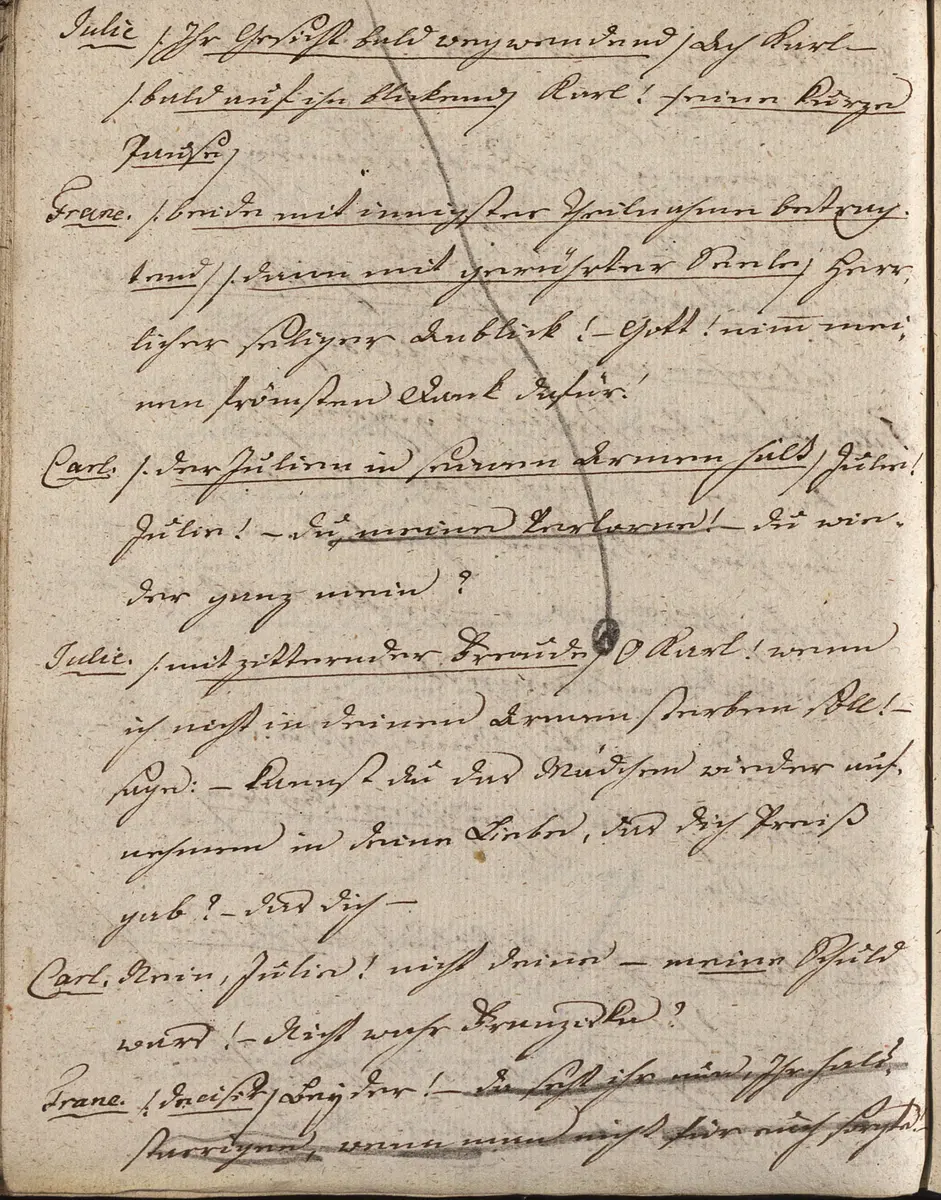 Julie /: Ihr Gesicht bald wegwendend) Ach Karl –
/: bald auf ihn blickend) Karl! /: eine kurze
Pause)
Franc. /: beide mit innigster Theilnahme betrach-
tend) /: dann mit gerührter Seele) Herr-
licher seliger Anblick! – Gott! nimm mei-
nen frömsten Dank dafür!
Carl. /: der Julien in seinen Armen hält) Julie!
Julie! – du, meine Verlorne! – du wie-
der ganz mein?
Julie. /: mit zitternder Freude) O Karl! wenn
ich nicht in deinen Armen sterben soll! –
sage: – kannst du das Mädchen wieder auf-
nehmen in deine Liebe, das dich Preiß
gab? – das dich –
Carl. Nein, Julie! nicht deine – meine Schuld
wars! – Nicht wahr Franziska?
Franc. /: decisiv) Beyder! – da seht ihr nun, Ihr Hals-
starrigen, wenn man nicht für euch sorgte!